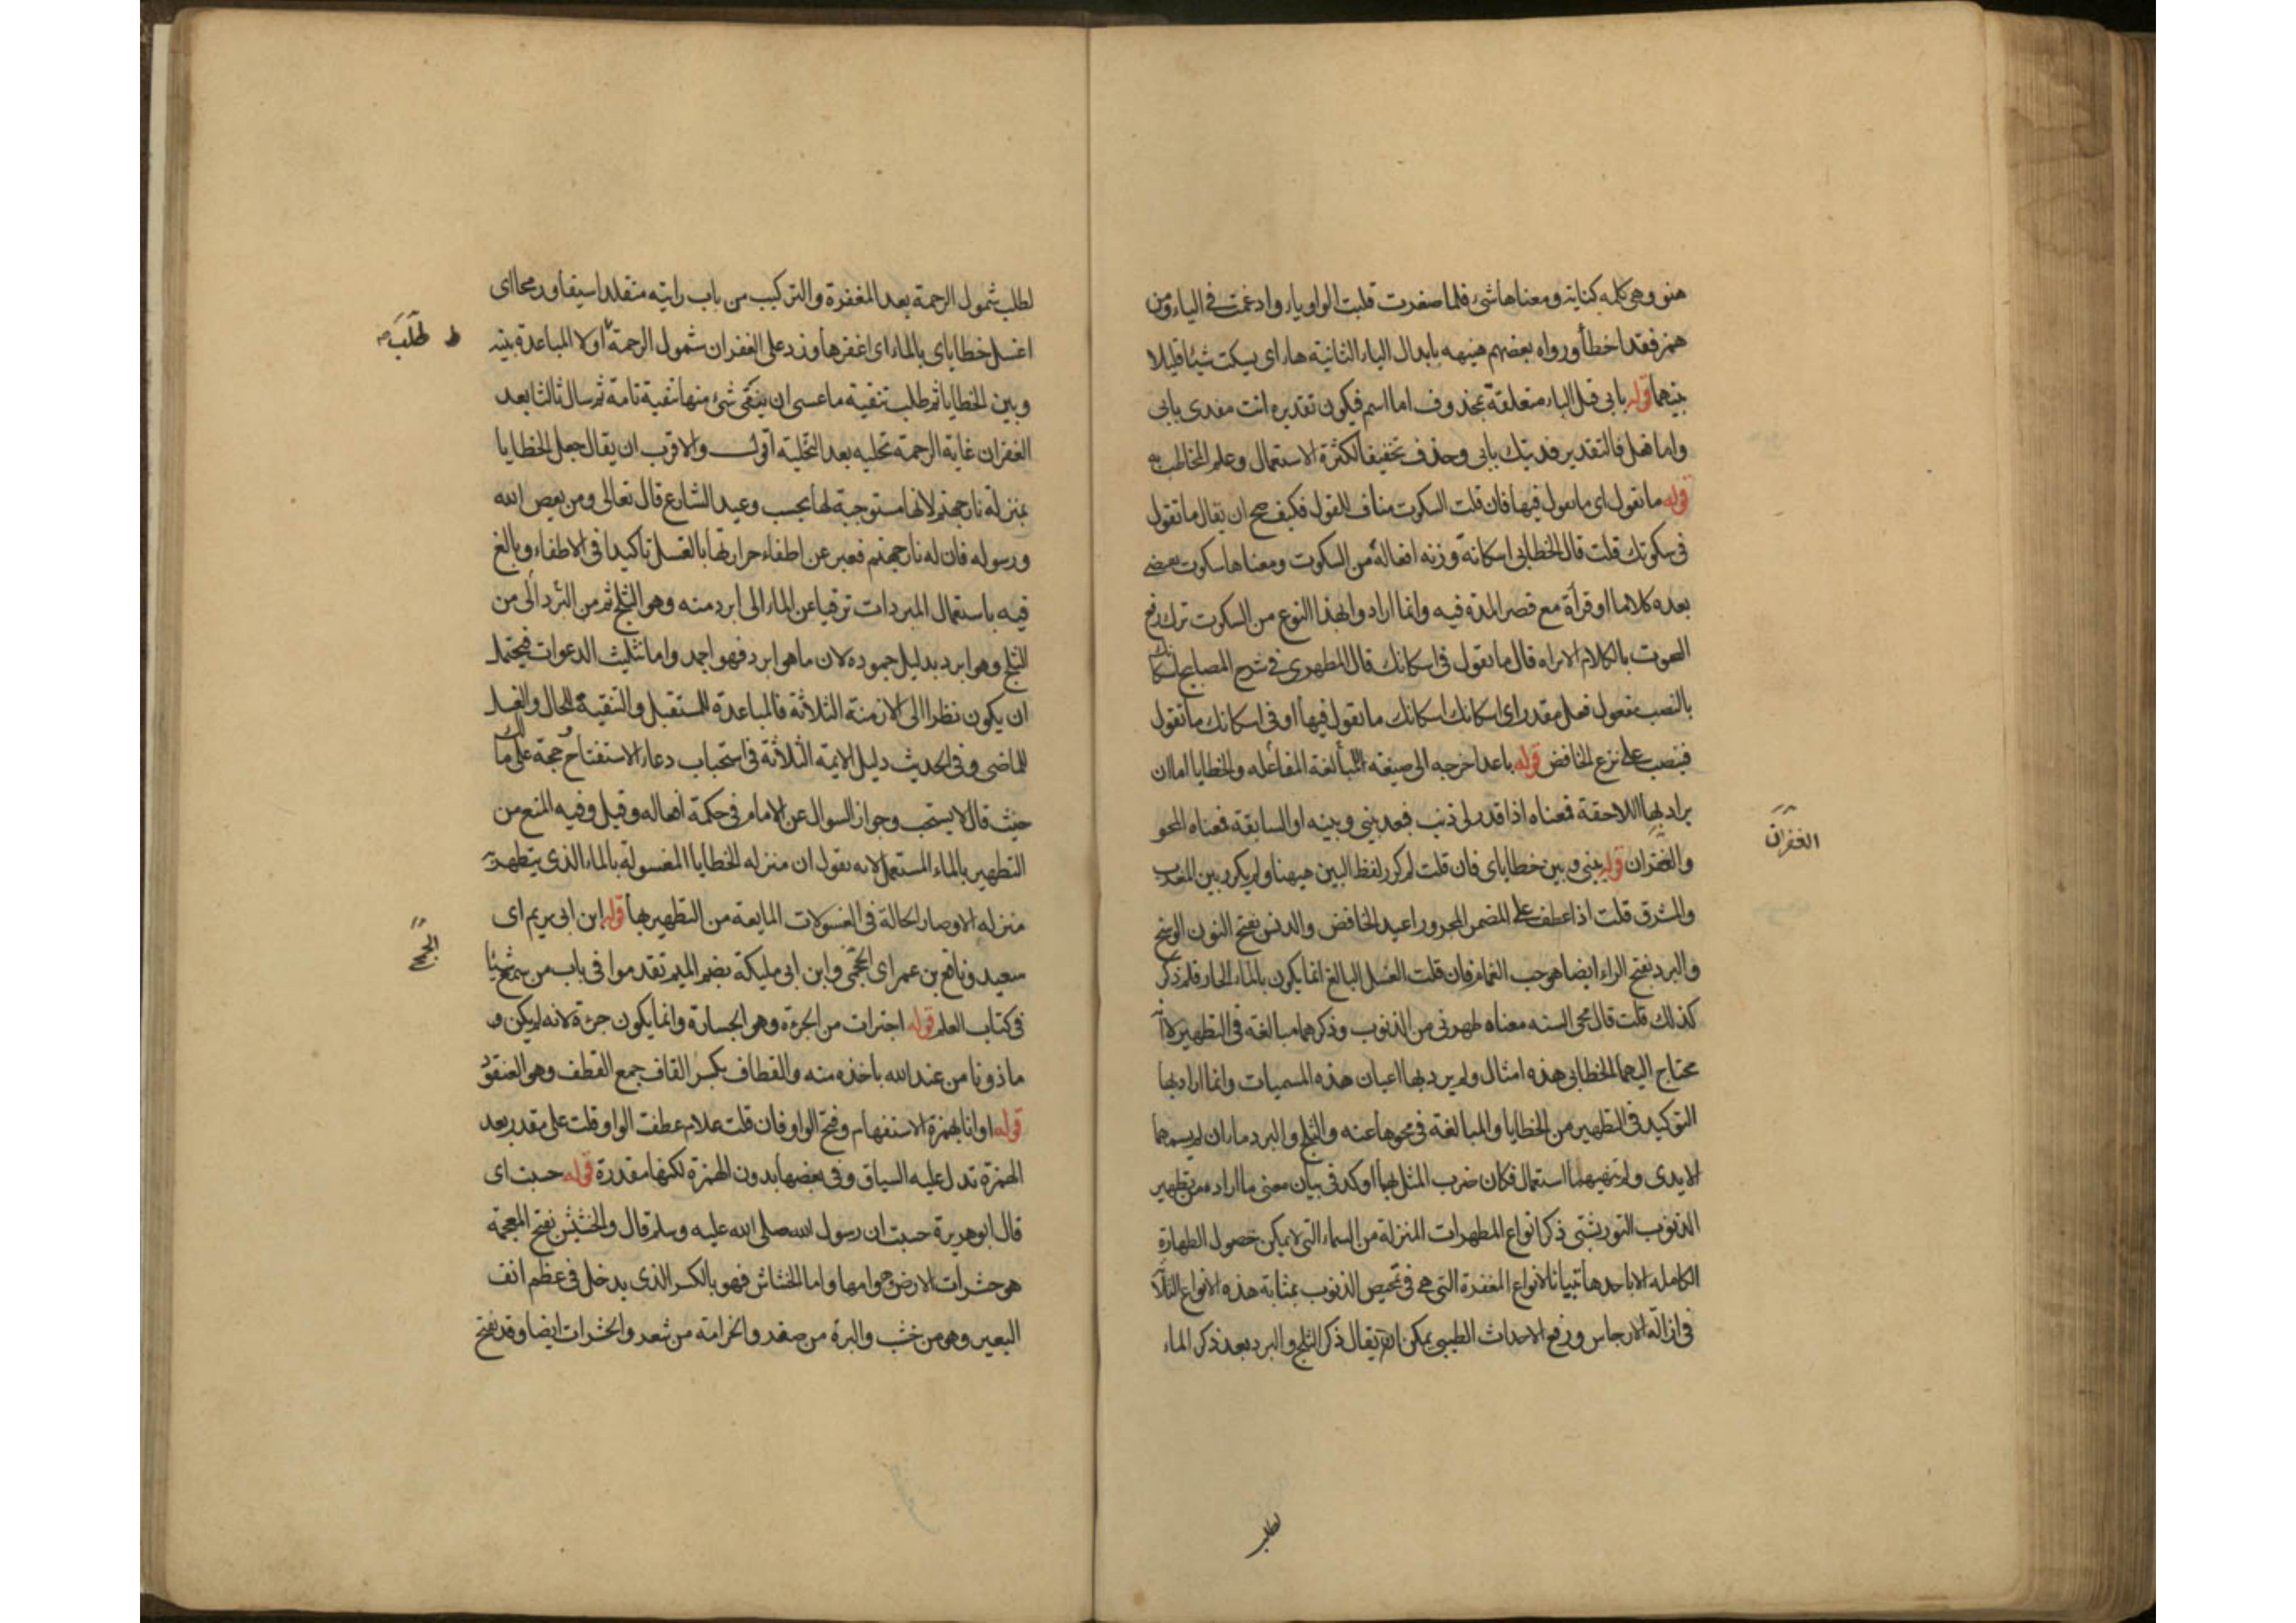 هنو وهي كلمه كناية ومعناها شيء فلما صغرت قلبت الواو ياء وادغمت في الياء ومن
همز فقد اخطأ ورواه بعضهم هنيهه بابدال الياء الثانية هاء اى يسكت شيئا قليلا
بينهما قوله بابى قيل الباء متعلقة بمحذوف اما اسم فيكون تقديره انت مفدى بابى
واما فعل فالتقدير فديتك بابى وحذف تخفيفا لكثرة الاستعمال وعلم المخاطب به
قوله ما تقول اى ما تقول فيها فان قلت السكوت مناف للقول فكيف صح ان يقال ما تقول
فى سكوتك قلت قال الخطابى اسكاتة وزنه افعالة من السكوت ومعناها سكوت يقتضى
بعده كلاما او قرأة مع قصر المدة فيه وانما ارادوا بهذا النوع من السكوت ترك رفع
الصوت بالكلام الا تراه قال ما تقول فى اسكاتك قال المظهرى فى شرح المصابيح اسكاتك
بالنصب مفعول فعل مقدر اى اسكاتك اسكاتك ما تقول فيها او فى اسكاتك ما تقول
فينصب على نزع الخافض قوله باعد اخرجه الى صيغة المفاعله للمبالغة والخطايا اما ان
يراد بها اللاحقة فمعناه اذا قدر لى ذنب فبعد بينى وبينه او السابقة فمعناه المحو
والغفران قوله بينى وبين خطاياى فان قلت لم كرر لفظ البين ههنا ولم يكرر بين المغرب
والمشرق قلت اذا عطف على المضمر المجرور اعيد الخافض والدنس بفتح النون الوسخ
والبرد بفتح الراء ايضا هو حب الغمام فان قلت الغسل البالغ انما يكون بالماء الحار فلم ذكر
كذلك قلت قال محى السنه معناه طهرنى من الذنوب وذكرهما مبالغة فى التطهير لا انه
محتاج اليهما الخطابى هذه امثال ولم يرد بها اعيان هذه المسميات وانما اراد بها
التوكيد فى التطهير من الخطايا والمبالغة فى محوها عنه والثلج والبرد ماءان لم يمسهما
الايدى ولم يمتهنهما استعمال فكان ضرب المثل بهما اوكد فى بيان معنى ما اراد من تطهير
الذنوب التوربشتى ذكر انواع المطهرات المنزلة من السماء التى لا يمكن حصول الطهارة
الكامله الا باحدها تبيانا لانواع المغفرة التى هى فى تمحيص الذنوب بمثابة هذه الانواع الثلاثة
فى ازالة الارجاس ورفع الاحداث الطيبى يمكن ان يقال ذكر الثلج والبرد بعد ذكر الماء
الغفران
لطلب
لطلب شمول الرحمة بعد المغفرة والتركيب من باب رايته متقلدا سيفا ورمحا اى
اغسل خطاياى بالماء اى اغفرها وزد على الغفران شمول الرحمة اولا المباعدة بينه
ط طلب صح
وبين الخطايا ثم طلب تنقية ما عسى ان يبقى شئ منها تنقية تامة ثم سال ثالثا بعد
الغفران غاية الرحمة تحليه بعد التخلية اقول والاقرب ان يقال جعل الخطايا
بمنزلة نار جهنم لانها مستوجبة لها بحسب وعيد الشارع قال تعالى ومن يعص الله
ورسوله فان له نار جهنم فعبر عن اطفاء حرارتها بالغسل تاكيدا فى الاطفاء وبالغ
فيه باستعمال المبردات ترقيا عن الماء الى ابرد منه وهو الثلج ثم من البرد الى من
الثلج وهو ابرد بدليل جموده لان ما هو ابرد فهو اجمد واما تثليث الدعوات فيحتمل
ان يكون نظرا الى الازمنة الثلاثة فالمباعدة للمستقبل والتنقية للحال والغسل
للماضى وفى الحديث دليل الايمة الثلاثة فى استحباب دعاء الاستفتاح حجة على مالك
حيث قال لا يستحب وجواز السوال عن الامام فى حكمة افعاله وقيل وفيه المنع من
التطهير بالماء المستعمل لانه يقول ان منزله الخطايا المغسولة بالماء الذى يتطهر به
منزله الاوضار الحالة فى الغسولات المايعة من التطهير بها قوله ابن ابى مريم اى
سعيد ونافع بن عمر اى الجمحى وابن ابى مليكة بضم الميم تقدموا فى باب من سمع شيئا
الجمح
فى كتاب العلم قوله اجترات من الجرءة وهو الجسارة وانما يكون جرءة لانه لم يكن
ماذونا من عند الله باخذه منه والقطاف بكسر القاف جمع القطف وهى العنقود
قوله او انا بهمزة الاستفهام وفتح الواو فان قلت علام عطف الواو قلت على مقدر بعد
الهمزة تدل عليه السياق وفى بعضها بدون الهمزة لكنها مقدرة قوله حسبت اى
قال ابو هريرة حسبت ان رسول الله صلى الله عليه وسلم قال والخشش بفتح المعجمة
هو حشرات الارض وهوامها واما الخشاش فهو بالكسر الذى يدخل فى عظم انف
البعير وهو من خشب والبرة من صفر والخزامة من شعر والحشرات ايضا وقد يفتح